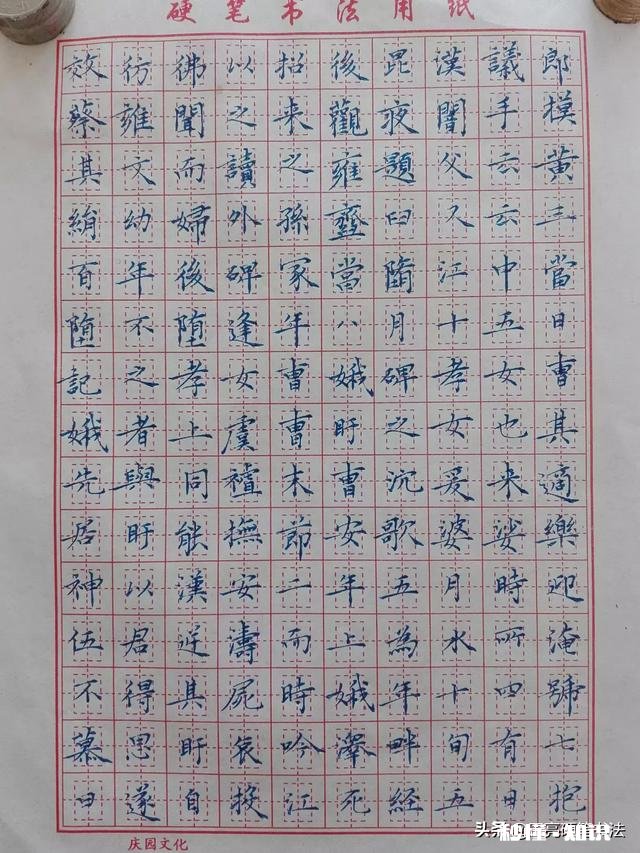 硬笔书法用纸
效彷彿以招後昆漢議郎
蔡雍聞之来觀夜闇手模
其文而讀之雍題父云黄
絹幼婦外孫虀曰又云三
百年後碑冢當隋江中當
墮不墮逢年八月十五日
記之孝女曹娥碑孝女曹
娥者上虞曹盱之女也其
先與同末曹沉爰来適
居盱能撫節安歌婆娑樂
神以漢安二年五月時迎
伍君逆濤而上為水所淹
不得其屍時娥年十四號
慕思盱哀吟澤畔旬有七
日遂自投江死経五日抱
庆园文化
头条
知识